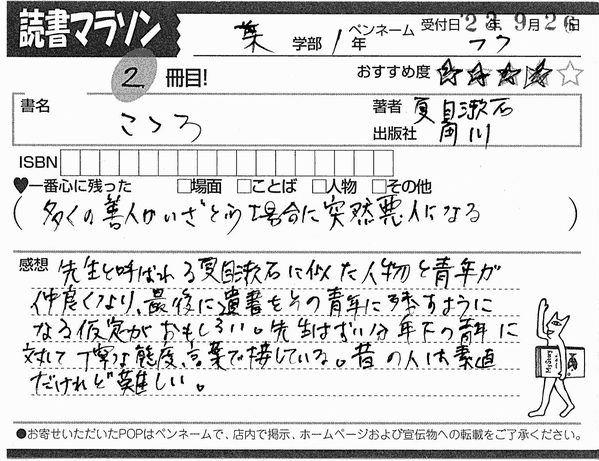 読書マラソン
薬 学部 1年
ペンネーム
フフ
受付日 23年 9月26日
2 冊目!
おすすめ度 ★★★★☆
書名
こころ
著者 夏目漱石
出版社 角川
ISBN
♥一番心に残った □場面 □ことば □人物 □その他
(多くの善人がいざという場合に突然悪人になる)
感想
先生と呼ばれる夏目漱石に似た人物と青年が
仲良くなり、最後に遺書をその青年に残すように
なる仮定がおもしろい。先生はずい分年下の青年に
対して丁寧な態度、言葉で接している。昔の人は素直
だけれど難しい。
●お寄せいただいたPOPはペンネームで、店内で掲示、ホームページおよび宣伝物への転載をご了承ください。